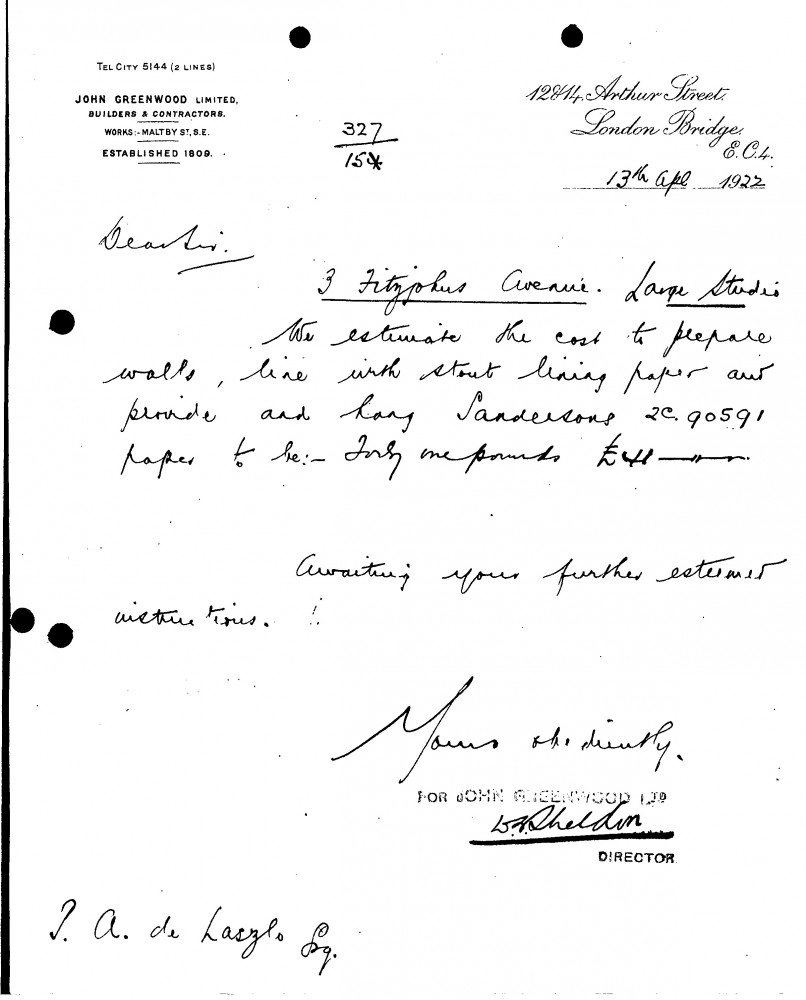 TEL CITY 5144 (2 LINES)
JOHN GREENWOOD LIMITED,
BUILDERS & CONTRACTORS.
WORKS:- MALTBY ST, S.E.
ESTABLISHED 1809.
327
154
12 & 14, Arthur Street,
London Bridge,
E.C.4.
13th Apl 1922
Dear Sir.
3 Fitzjohns Avenue. Large Studio
We estimate the cost to prepare
walls, line with stout lining paper and
provide and hang Sandersons 2C. 90591
paper to be:- Forty one pounds £41 — " — " —.
Awaiting your further esteemed
instructions.
Yours obediently,
FOR JOHN GREENWOOD LTD
Sheldon
DIRECTOR
P. A. de Laszlo Esq.